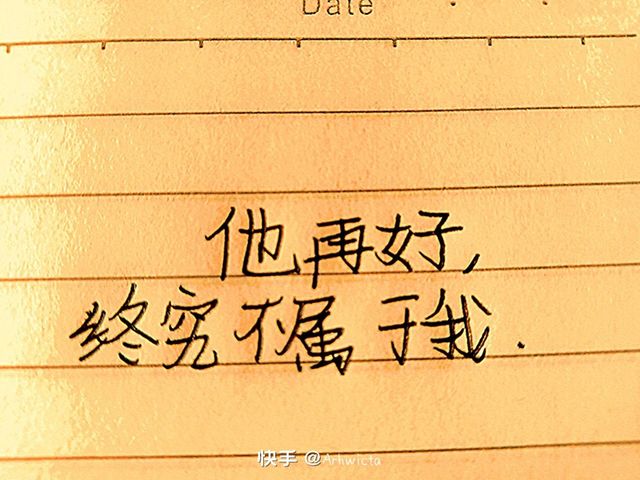 Date
他再好,
终究不属于我.
快手 @Arhwicta